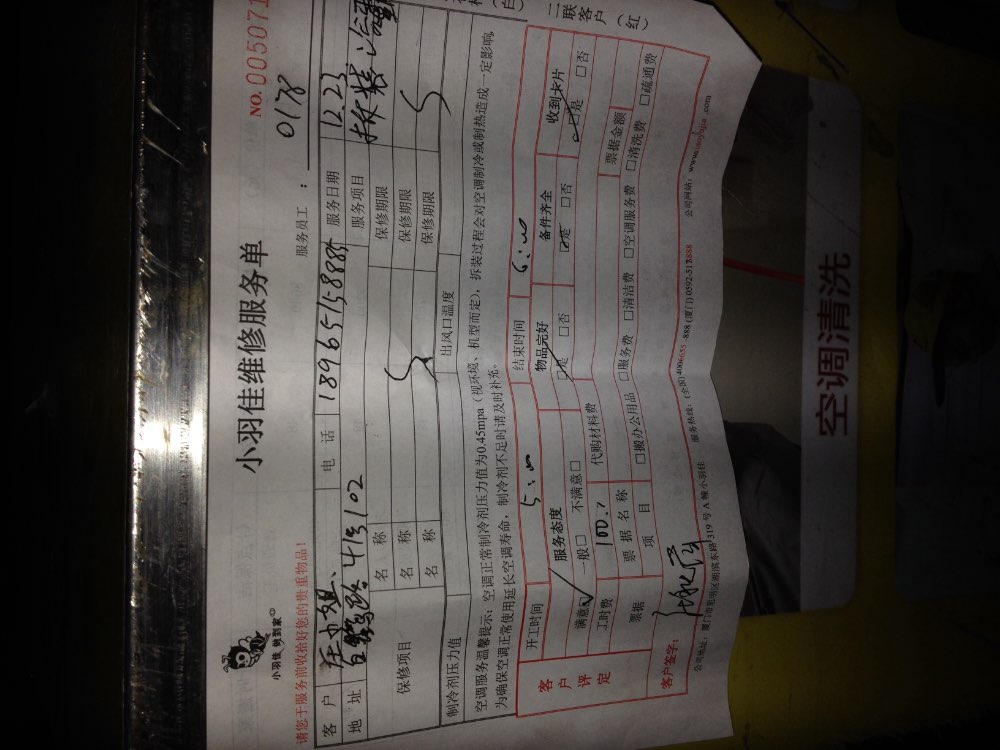 小羽佳 做到家
小羽佳维修服务单
NO. 005071
请您于服务前收拾好您的贵重物品!
服务员工: 0178
客户 庄小姐 电话 18965158885 服务日期 12.23
地址 41号102 服务项目 拆装
保修项目 名称 保修期限
名称 保修期限
名称 保修期限
制冷剂压力值 出风口温度
空调服务温馨提示:空调正常制冷剂压力值为0.45mpa(视环境、机型而定),拆装过程会对空调制冷或制热造成一定影响,
为确保空调正常使用延长空调寿命,制冷剂不足时请及时补充。
客户评定
开工时间 5:00 结束时间 6:00
服务态度 物品完好 备件齐全 收到卡片
满意☑ 一般□ 不满意□ ☑是 □否 ☑是 □否 ☑是 □否
工时费 100.? 代购材料费 票据金额
票据 票据名称 □服务费 □清洁费 □空调服务费 □清洗费 □疏通费
项目 □搬办公用品
客户签字:
公司地址:厦门市思明区湖滨东路319号A幢小羽佳 服务热线:(全国)4006655-888(厦门)0592-5178888 公司网站:www.xiaoyujia.com
二联客户(红)
空调清洗